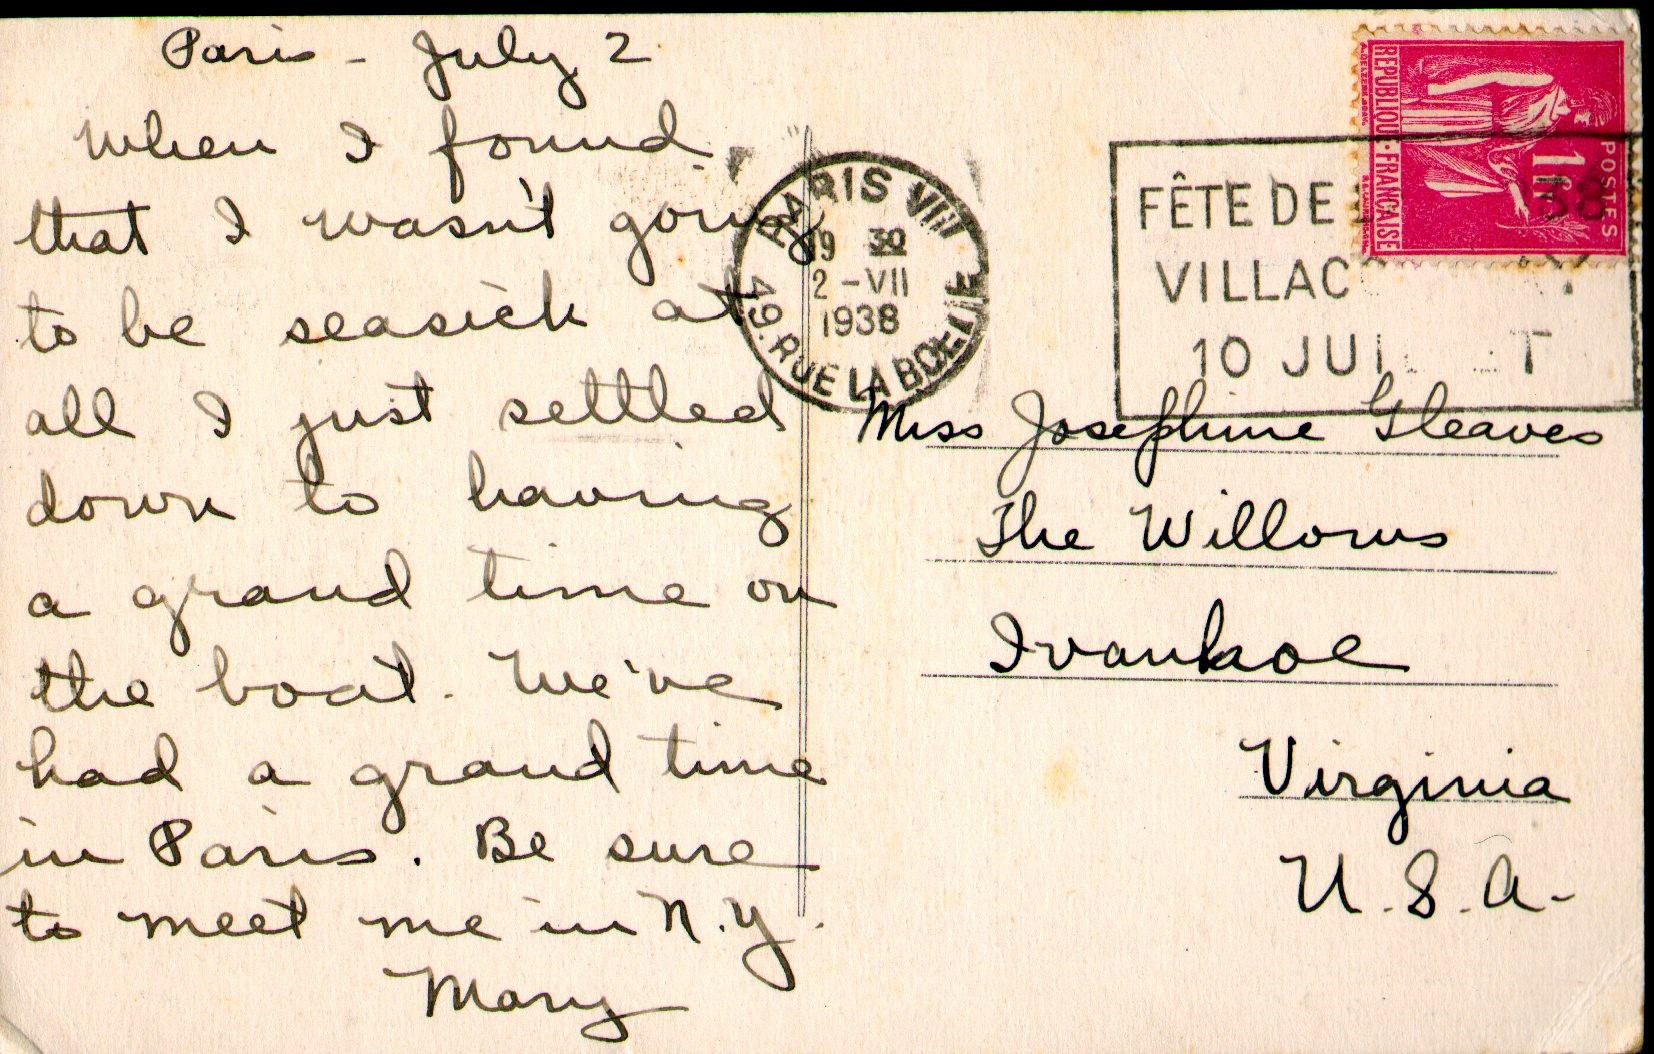 Paris - July 2
When I found
that I wasn't going
to be seasick at
all I just settled
down to having
a grand time on
the boat. We've
had a grand time
in Paris. Be sure
to meet me in N.Y.
Mary
PARIS VIII
19 30
2 -VII
1938
49. RUE LA BOETIE
FÊTE DE
VILLAC
10 JUI T
REPUBLIQUE·FRANÇAISE
POSTES
1F
38
Miss Josephine Gleaves
The Willows
Ivanhoe
Virginia
U.S.A.